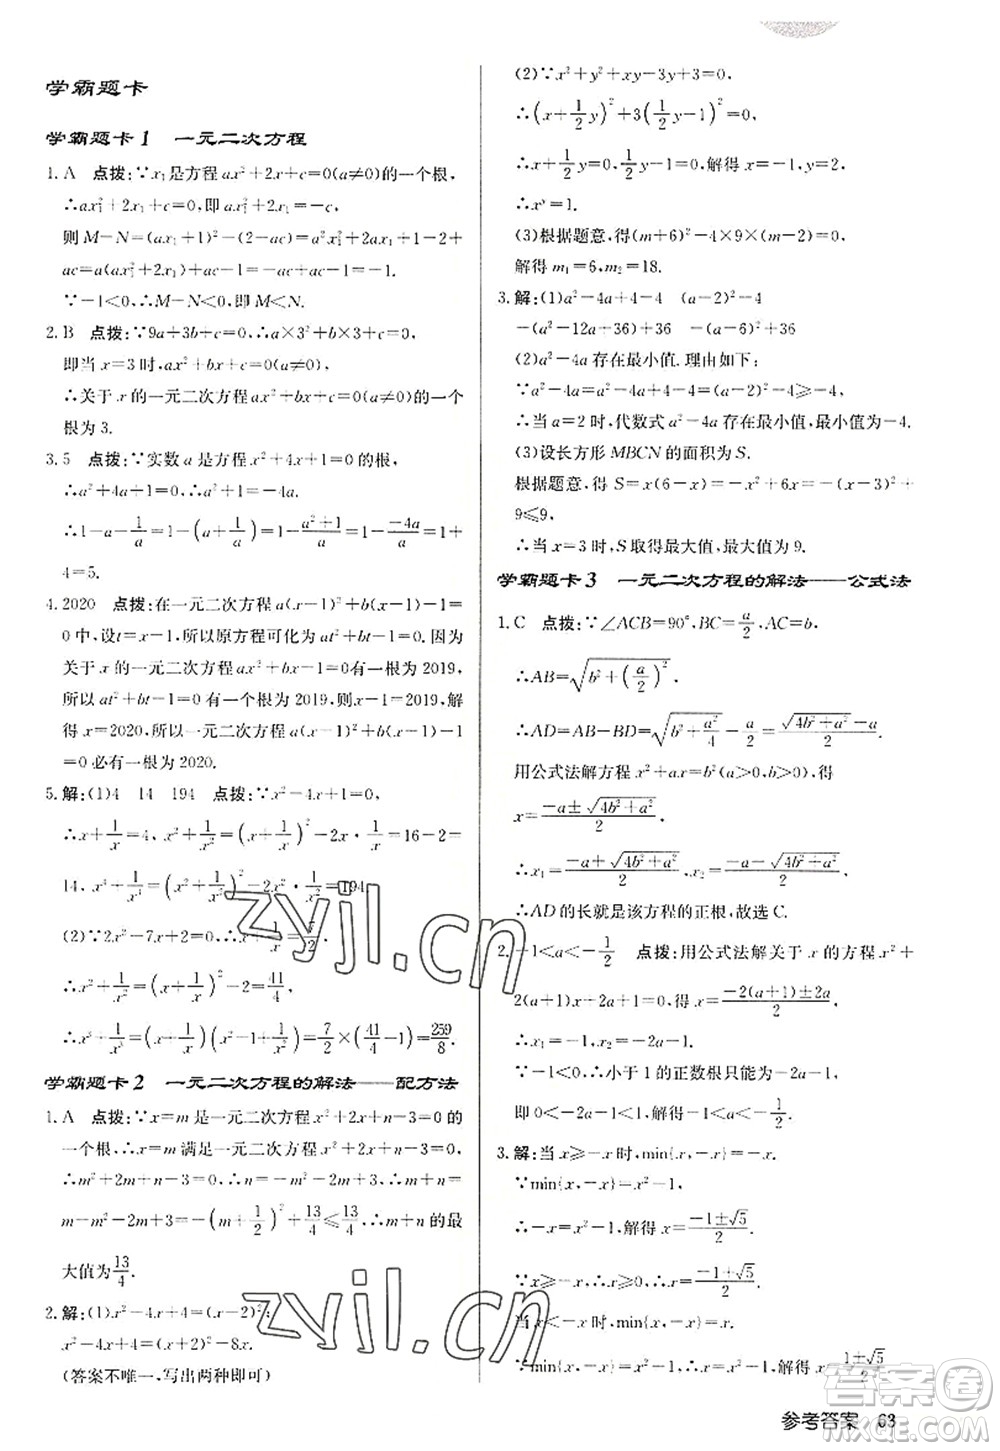 学霸题卡
学霸题卡1 一元二次方程
1.A 点拨:∵x₁是方程ax²+2x+c=0(a≠0)的一个根,
∴ax₁²+2x₁+c=0,即ax₁²+2x₁=-c,
则M-N=(ax₁+1)²-(2-ac)=a²x₁²+2ax₁+1-2+
ac=a(ax₁²+2x₁)+ac-1=-ac+ac-1=-1.
∵-1<0,∴M-N<0,即M<N.
2.B 点拨:∵9a+3b+c=0,∴a×3²+b×3+c=0,
即当x=3时,ax²+bx+c=0(a≠0),
∴关于x的一元二次方程ax²+bx+c=0(a≠0)的一个
根为3.
3.5 点拨:∵实数a是方程x²+4x+1=0的根,
∴a²+4a+1=0,∴a²+1=-4a.
∴1-a-1/a=1-(a+1/a)=1-(a²+1)/a=1-(-4a)/a=1+
4=5.
4.2020 点拨:在一元二次方程a(x-1)²+b(x-1)-1=
0中,设t=x-1,所以原方程可化为at²+bt-1=0.因为
关于x的一元二次方程ax²+bx-1=0有一个根为2019,
所以at²+bt-1=0有一个根为2019,则x-1=2019,解
得x=2020,所以一元二次方程a(x-1)²+b(x-1)-1=
0必有一根为2020.
5.解:(1)4 14 194 点拨:∵x²-4x+1=0,
∴x+1/x=4,∴x²+1/x²=(x+1/x)²-2x·1/x=16-2=
14,
(2)∵2x²-7x+2=0,
∴x²+1/x²=
学霸题卡2 一元二次方程的解法——配方法
1.A 点拨:∵x=m是一元二次方程x²+2x+n-3=0的
一个根,∴x=m满足一元二次方程x²+2x+n-3=0,
∴m²+2m+n-3=0,∴n=-m²-2m+3,∴m+n=
m-m²-2m+3=-(m+1/2)²+13/4≤13/4,∴m+n的最
大值为13/4.
2.解:(1)x²-4x+4=(x-2)²;
x²-4x+4=(x+2)²-8x.
(答案不唯一,写出两种即可)
(2)∵x²+y²+xy-3y+3=0,
∴(x+1/2y)²+3/4(y-2)²=0,
∴x+1/2y=0,y-2=0,解得x=-1,y=2,
(3)根据题意,得(m+6)²-4×9×(m-2)=0,
解得m₁=6,m₂=18.
3.解:(1)a²-4a+4-4 (a-2)²-4
-(a²-12a+36)+36 -(a-6)²+36
(2)a²-4a存在最小值.理由如下:
∵a²-4a=a²-4a+4-4=(a-2)²-4≥-4,
∴当a=2时,代数式a²-4a存在最小值,最小值为-4.
(3)设长方形MBCN的面积为S.
根据题意,得S=x(6-x)=-x²+6x=-(x-3)²+
9≤9,
∴当x=3时,S取得最大值,最大值为9.
学霸题卡3 一元二次方程的解法——公式法
1.C 点拨:∵∠ACB=90°,BC=a/2,AC=b,
∴AB=√(b²+(a/2)²),
∴AD=AB-BD=√(b²+a²/4)-a/2=(√(4b²+a²)-a)/2.
用公式法解方程x²+ax=b²(a>0,b>0),得
x=(-a±√(4b²+a²))/2,
∴x₁=(-a+√(4b²+a²))/2,x₂=(-a-√(4b²+a²))/2,
∴AD的长就是该方程的正根,故选C.
2.-1<a<-1/2 点拨:用公式法解关于x的方程x²+
2(a+1)x+2a+1=0,得x=(-2(a+1)±2a)/2.
∴x₁=-1,x₂=-2a-1.
∵-1<0,∴小于1的正数根只能为-2a-1,
即0<-2a-1<1,解得-1<a<-1/2.
3.解:当x≥-x时,min{x,-x}=-x.
∴-x=x²-1,解得x=(-1±√5)/2.
∵x≥-x,∴x≥0,∴x=(-1+√5)/2;
解得x=(1±√5)/2
参考答案 63
zyjl.cn
zyjl.cn
答案圈